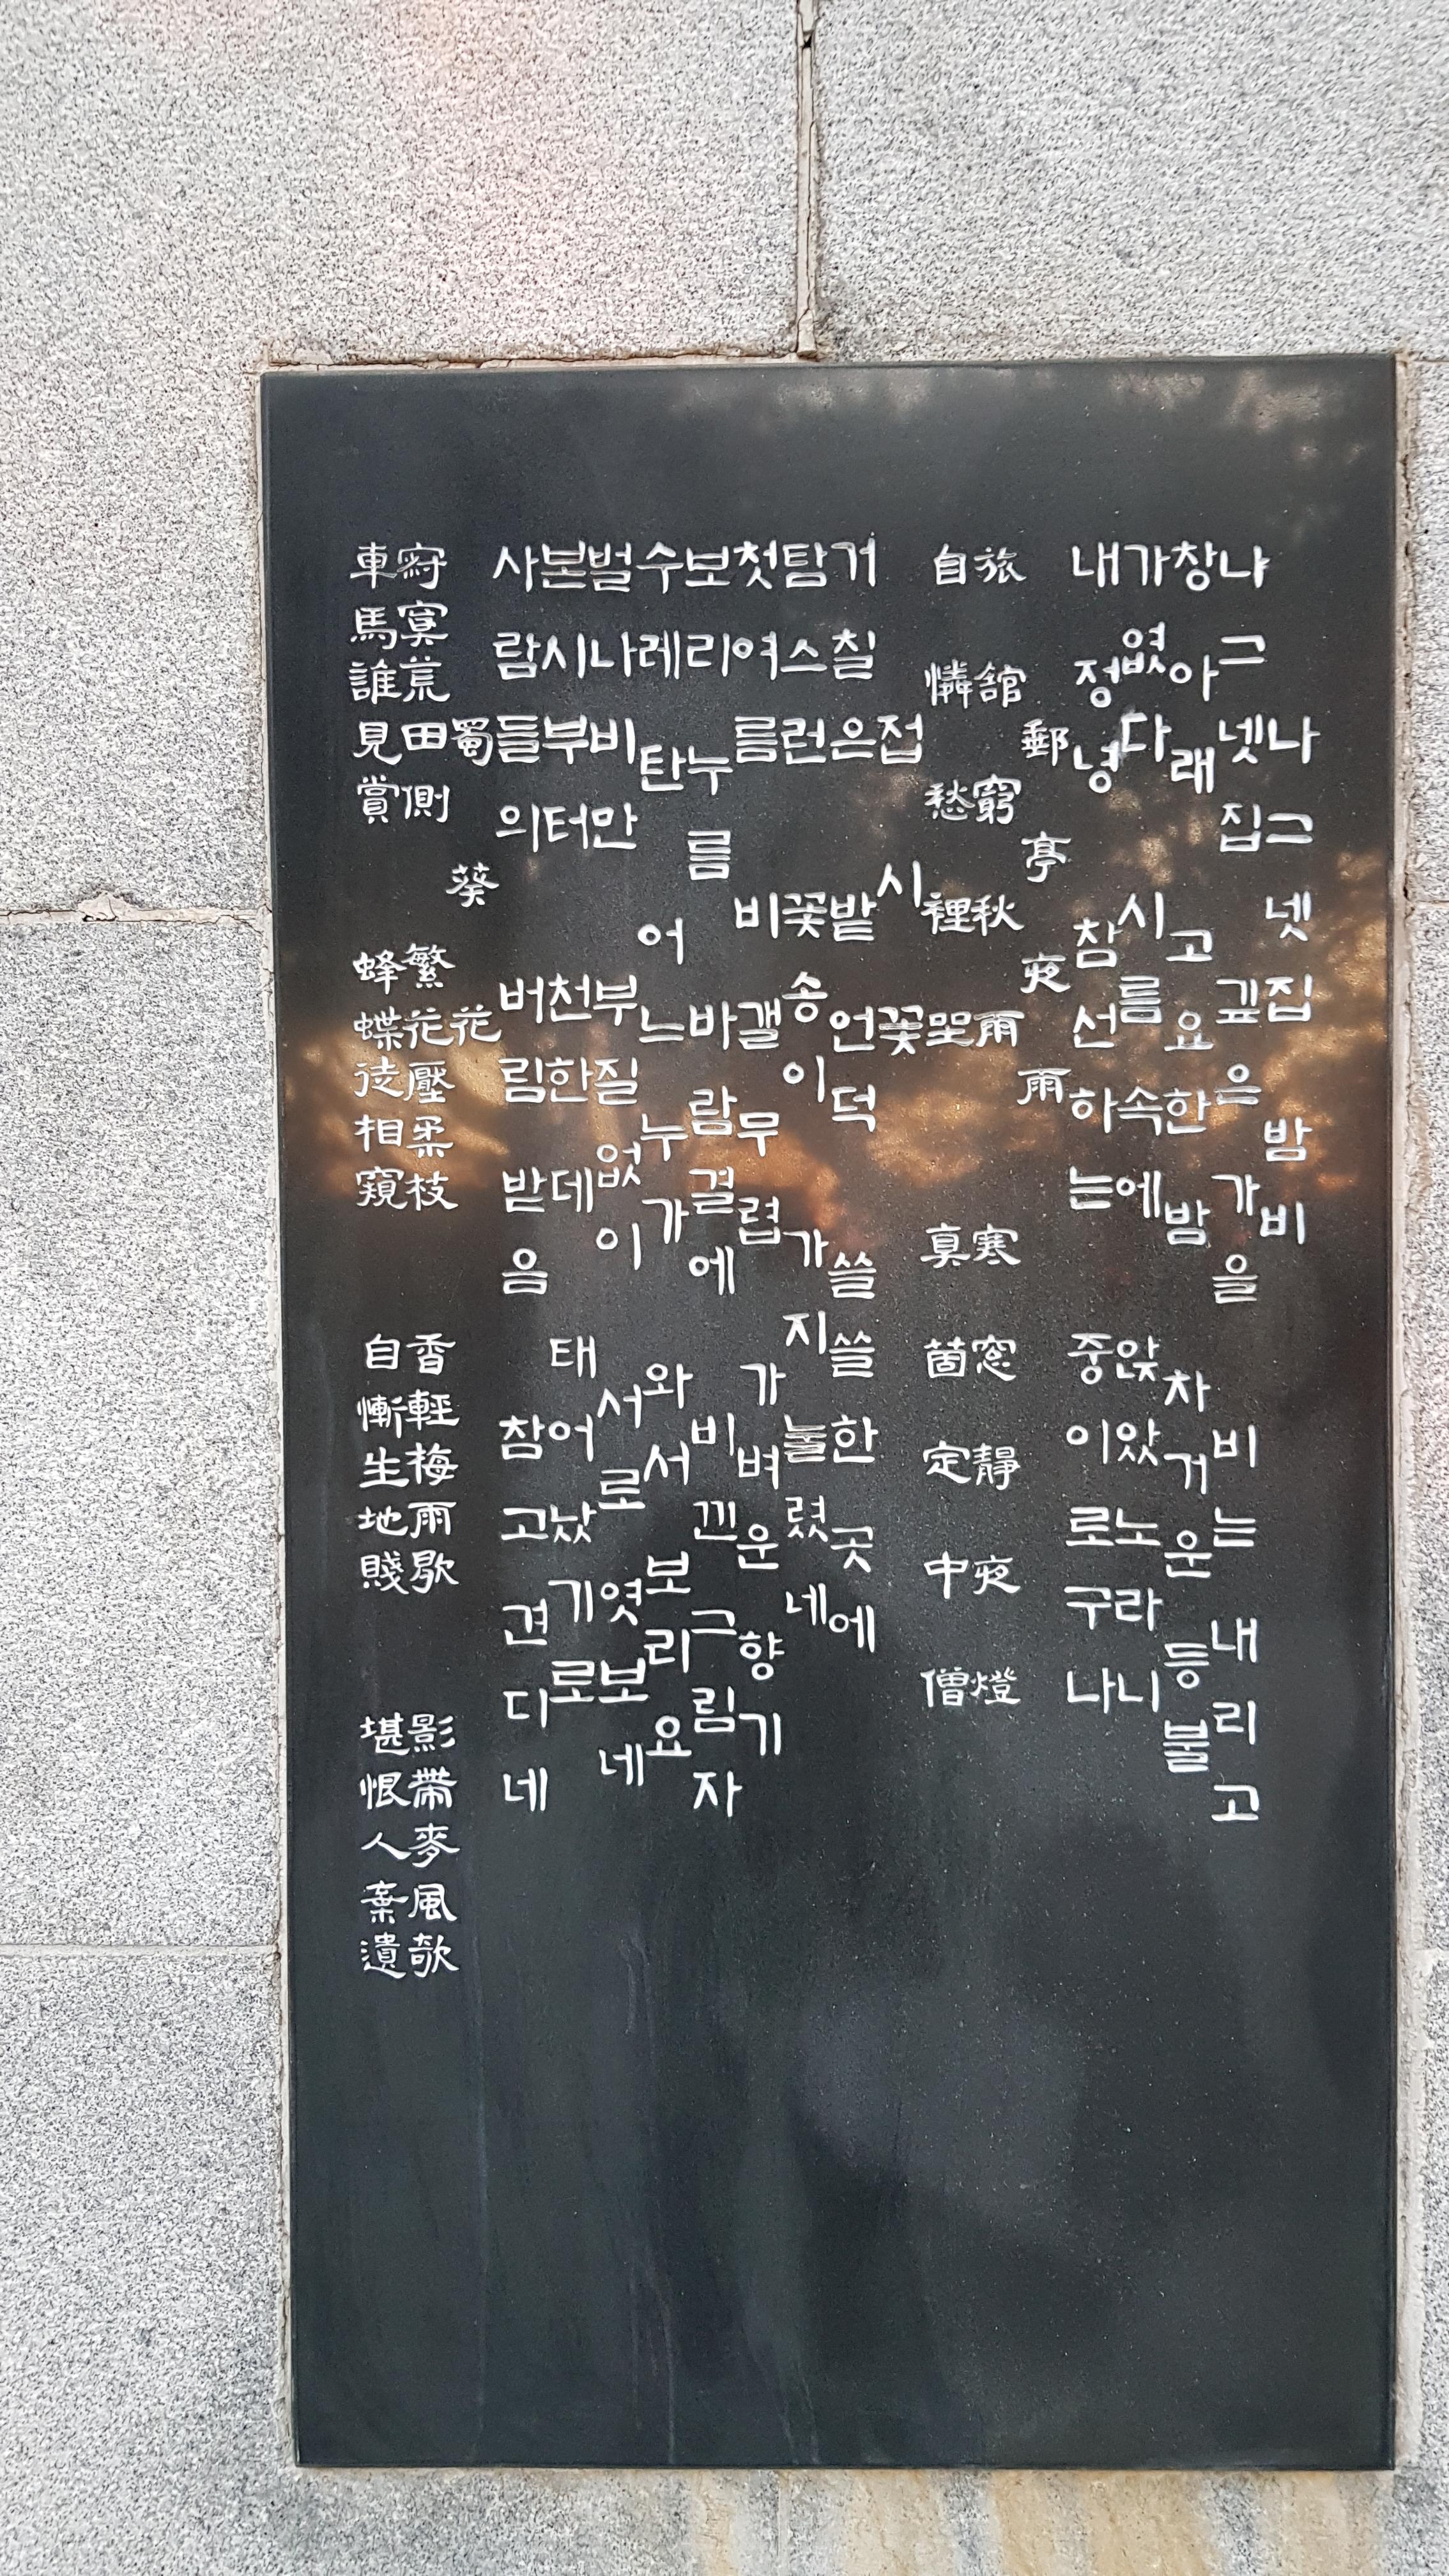 나그넷집 밤비
나그넷집 깊은 가을 비는 내리고
창아래 고요한 밤 차거운 등불
가엾다 시름 속에 앉았노라니
내 정녕 참선하는 중이로구나
郵亭夜雨
旅舘窮秋雨 寒窓靜夜燈
自憐愁裡坐 真箇定中僧
접시꽃
거칠은 밭 언덕 쓸쓸한 곳에
탐스런 꽃송이 가지 눌렸네
첫여름 비갤 무렵 가벼운 향기
보리누름 바람결에 비낀 그림자
수레탄 어느 누가 와서 보리요
벌 나비만 부질없이 서로 엿보네
본시부터 천한데 태어났기로
사람들의 버림받음 참고 견디네
蜀葵花
寂寞荒田側 繁花壓柔枝 香輕梅雨歇 影帶麥風欹
車馬誰見賞 蜂蝶徒相窺 自慚生地賤 堪恨人棄遺